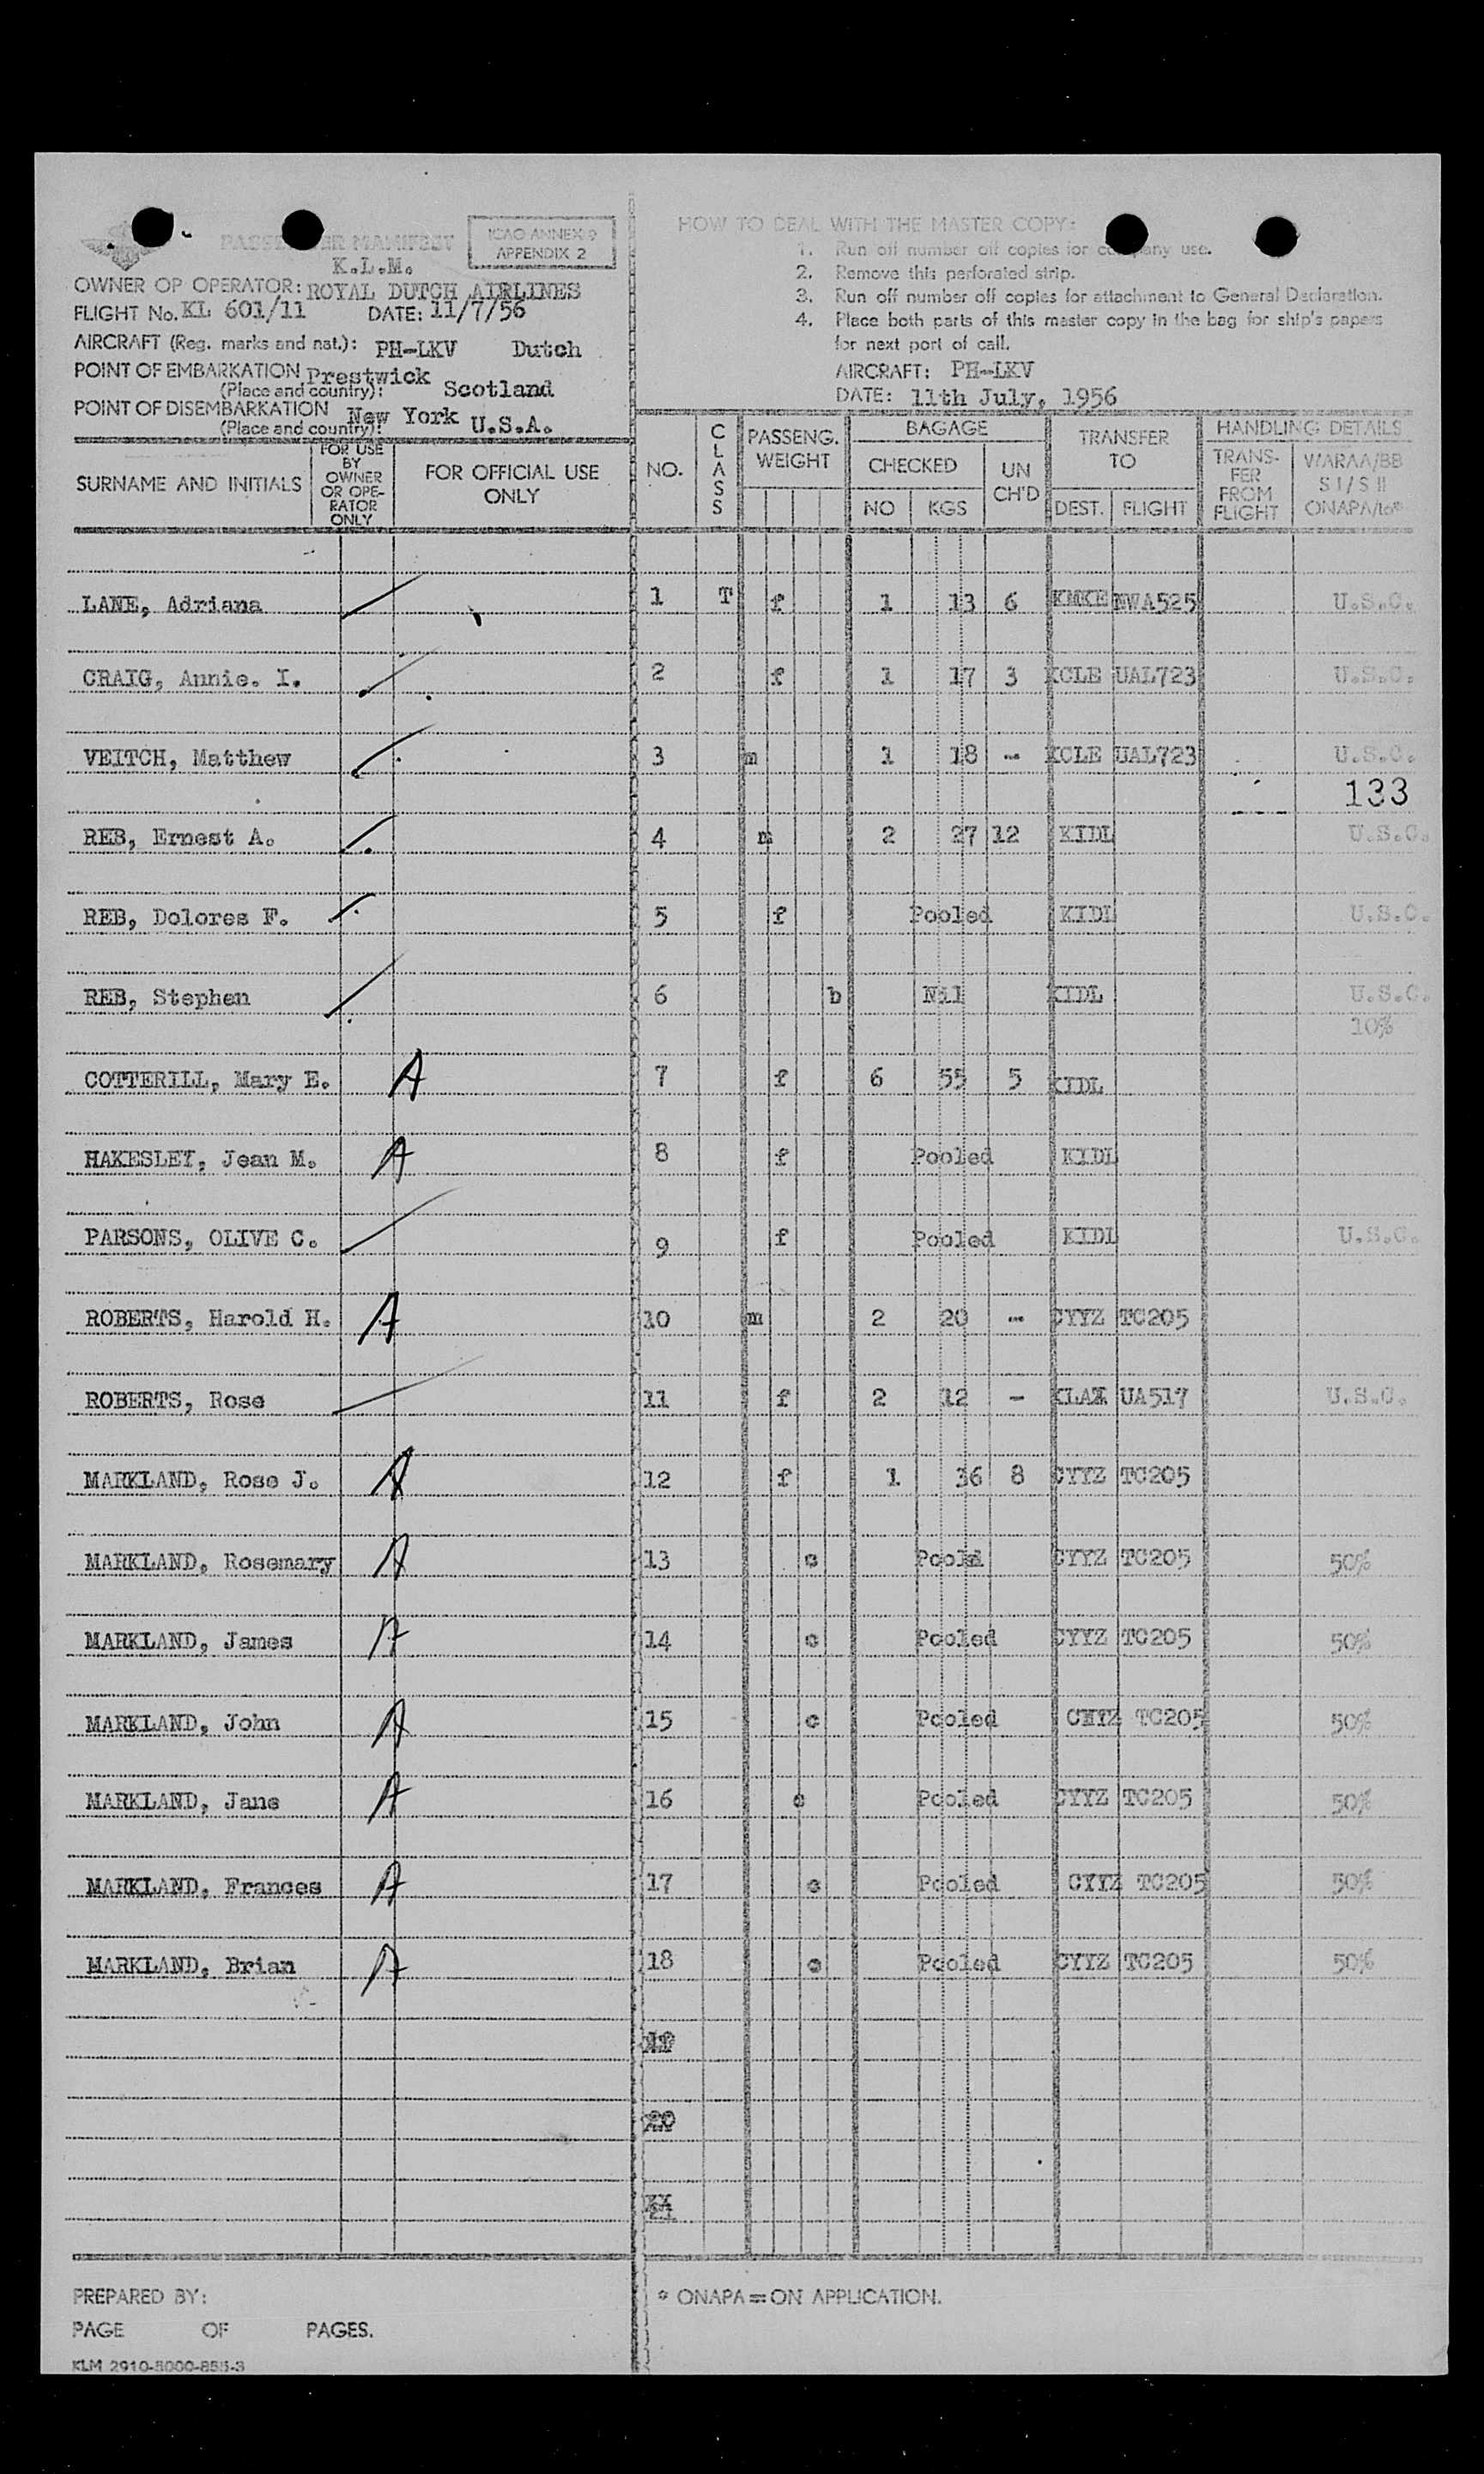 PASSENGER MANIFEST
ICAO ANNEX 9
APPENDIX 2
K.L.M.
OWNER OP OPERATOR: ROYAL DUTCH AIRLINES
FLIGHT No. KL 601/11 DATE: 11/7/56
AIRCRAFT (Reg. marks and nat.): PH-LKV Dutch
POINT OF EMBARKATION Prestwick Scotland
(Place and country):
POINT OF DISEMBARKATION New York U.S.A.
(Place and country):
HOW TO DEAL WITH THE MASTER COPY:
1. Run off number off copies for company use.
2. Remove this perforated strip.
3. Run off number off copies for attachment to General Declaration.
4. Place both parts of this master copy in the bag for ship's papers
for next port of call.
AIRCRAFT: PH-LKV
DATE: 11th July, 1956
SURNAME AND INITIALS
FOR USE BY OWNER OR OPE- RATOR ONLY
FOR OFFICIAL USE ONLY
NO.
CLASS
PASSENG. WEIGHT
BAGAGE
CHECKED
NO KGS
UN CH'D
TRANSFER TO
DEST. FLIGHT
HANDLING DETAILS
TRANS- FER FROM FLIGHT
WARAA/BB S I / S II ONAPA/to*
LANE, Adriana 1 T f 1 13 6 KMKE NWA525 U.S.C.
CRAIG, Annie. I. 2 f 1 17 3 KCLE UAL723 U.S.C.
VEITCH, Matthew 3 m 1 18 - KCLE UAL723 U.S.C.
133
REB, Ernest A. 4 m 2 27 12 KIDL U.S.C.
REB, Dolores F. 5 f Pooled KIDL U.S.C.
REB, Stephen 6 b Nil KIDL U.S.C.
10%
COTTERILL, Mary E. A 7 f 6 55 5 KIDL
HAKESLEY, Jean M. A 8 f Pooled KIDL
PARSONS, OLIVE C. 9 f Pooled KIDL U.S.C.
ROBERTS, Harold H. A 10 m 2 20 - CYYZ TC205
ROBERTS, Rose 11 f 2 12 - KLAX UA517 U.S.C.
MARKLAND, Rose J. A 12 f 1 36 8 CYYZ TC205
MARKLAND, Rosemary A 13 c Poold CYYZ TC205 50%
MARKLAND, James A 14 c Pooled CYYZ TC205 50%
MARKLAND, John A 15 c Pooled TC205 50%
MARKLAND, Jane A 16 c Pooled CYYZ TC205 50%
MARKLAND, Frances A 17 c Pooled CYYZ TC205 50%
MARKLAND, Brian A 18 c Pooled CYYZ TC205 50%
19
20
21
PREPARED BY:
PAGE OF PAGES.
KLM 2910-5000-855-3
* ONAPA = ON APPLICATION.